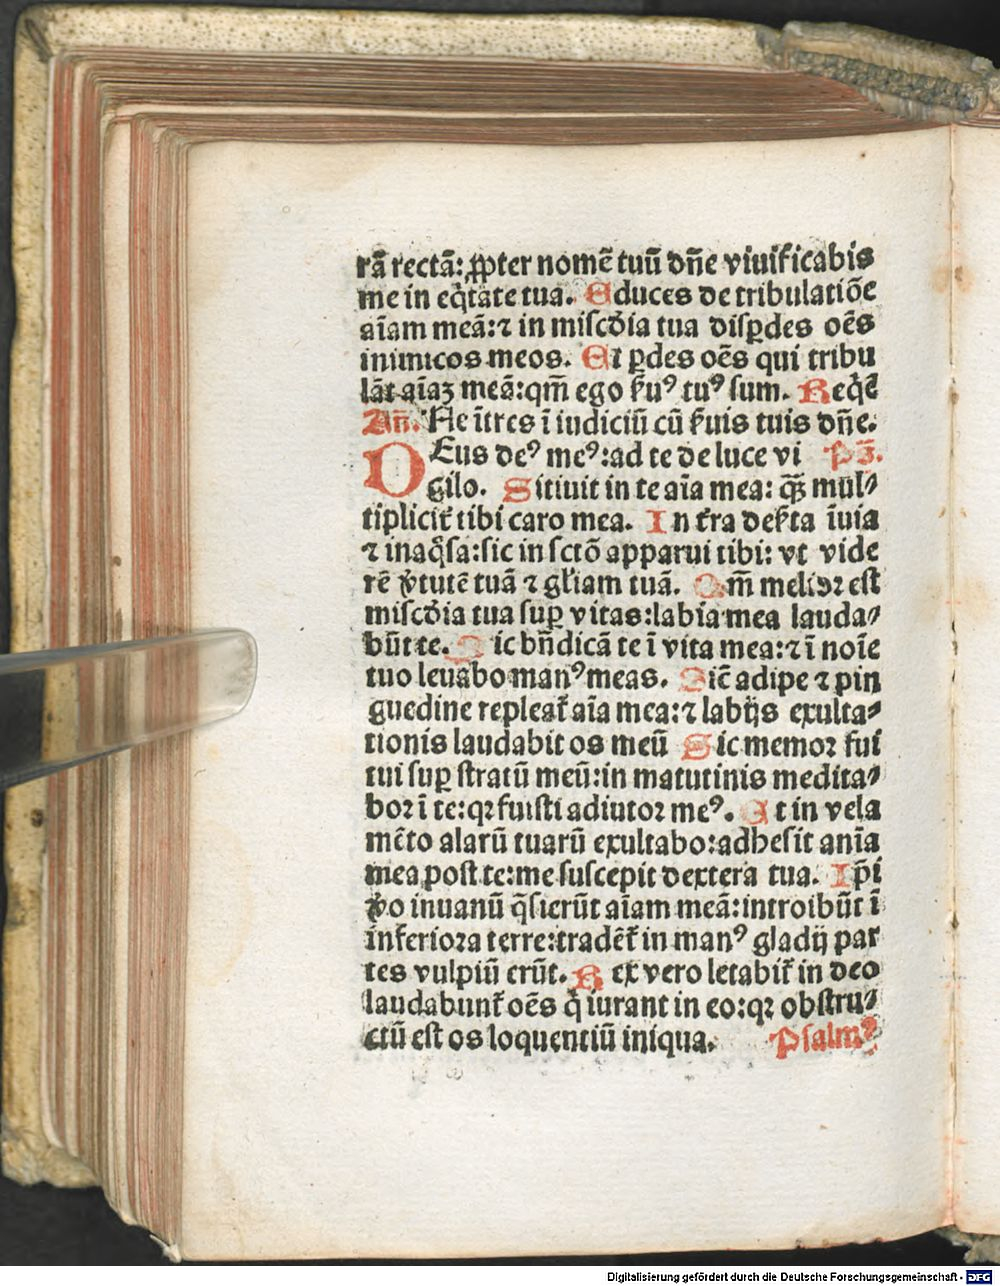 rā rectā: ꝓpter nomē tuū dn̄e viuificabis
me in eq̇tate tua. Educes de tribulatiōe
aīam meā: ⁊ in misc̄dia tua disꝑdes oēs
inimicos meos. Et ꝑdes oēs qui tribu
lāt aīaꝫ meā: qm̄ ego ẜuꝰ tuꝰ sum. Req̇ē
Añ. Ne ītres ī iudiciū cū ẜuis tuis dn̄e.
DEus deꝰ meꝰ: ad te de luce vi ps̄.
gilo. Sitiuit in te aīa mea: q̄ꝫ mul⸗
tipliciť tibi caro mea. In ťra deẜta īuia
⁊ inaq̇sa: sic in sctō apparui tibi: vt vide
rē v̇tutē tuā ⁊ gl̄iam tuā. Qm̄ melior est
misc̄dia tua suꝑ vitas: labia mea lauda⸗
būt te. Sic bn̄dicā te ī vita mea: ⁊ ī noīe
tuo leuabo manꝰ meas. Sic̄ adipe ⁊ pin
guedine repleať aīa mea: ⁊ labijs exulta⸗
tionis laudabit os meū Sic memor fui
tui suꝑ stratū meū: in matutinis medita⸗
bor ī te: qꝛ fuisti adiutor meꝰ. Et in vela
mēto alarū tuarū exultabo: adhesit anīa
mea post te: me suscepit dextera tua. Ip̄i
v̇o inuanū q̄sierūt aīam meā: introibūt ī
inferiora terre: tradēť in manꝰ gladij par
tes vulpiū erūt. Rex vero letabiť in deo
laudabunť oēs q̇ iurant in eo: qꝛ obstru⸗
ctū est os loquentiū iniqua. Psalmꝰ
Digitalisierung gefördert durch die Deutsche Forschungsgemeinschaft - DFG